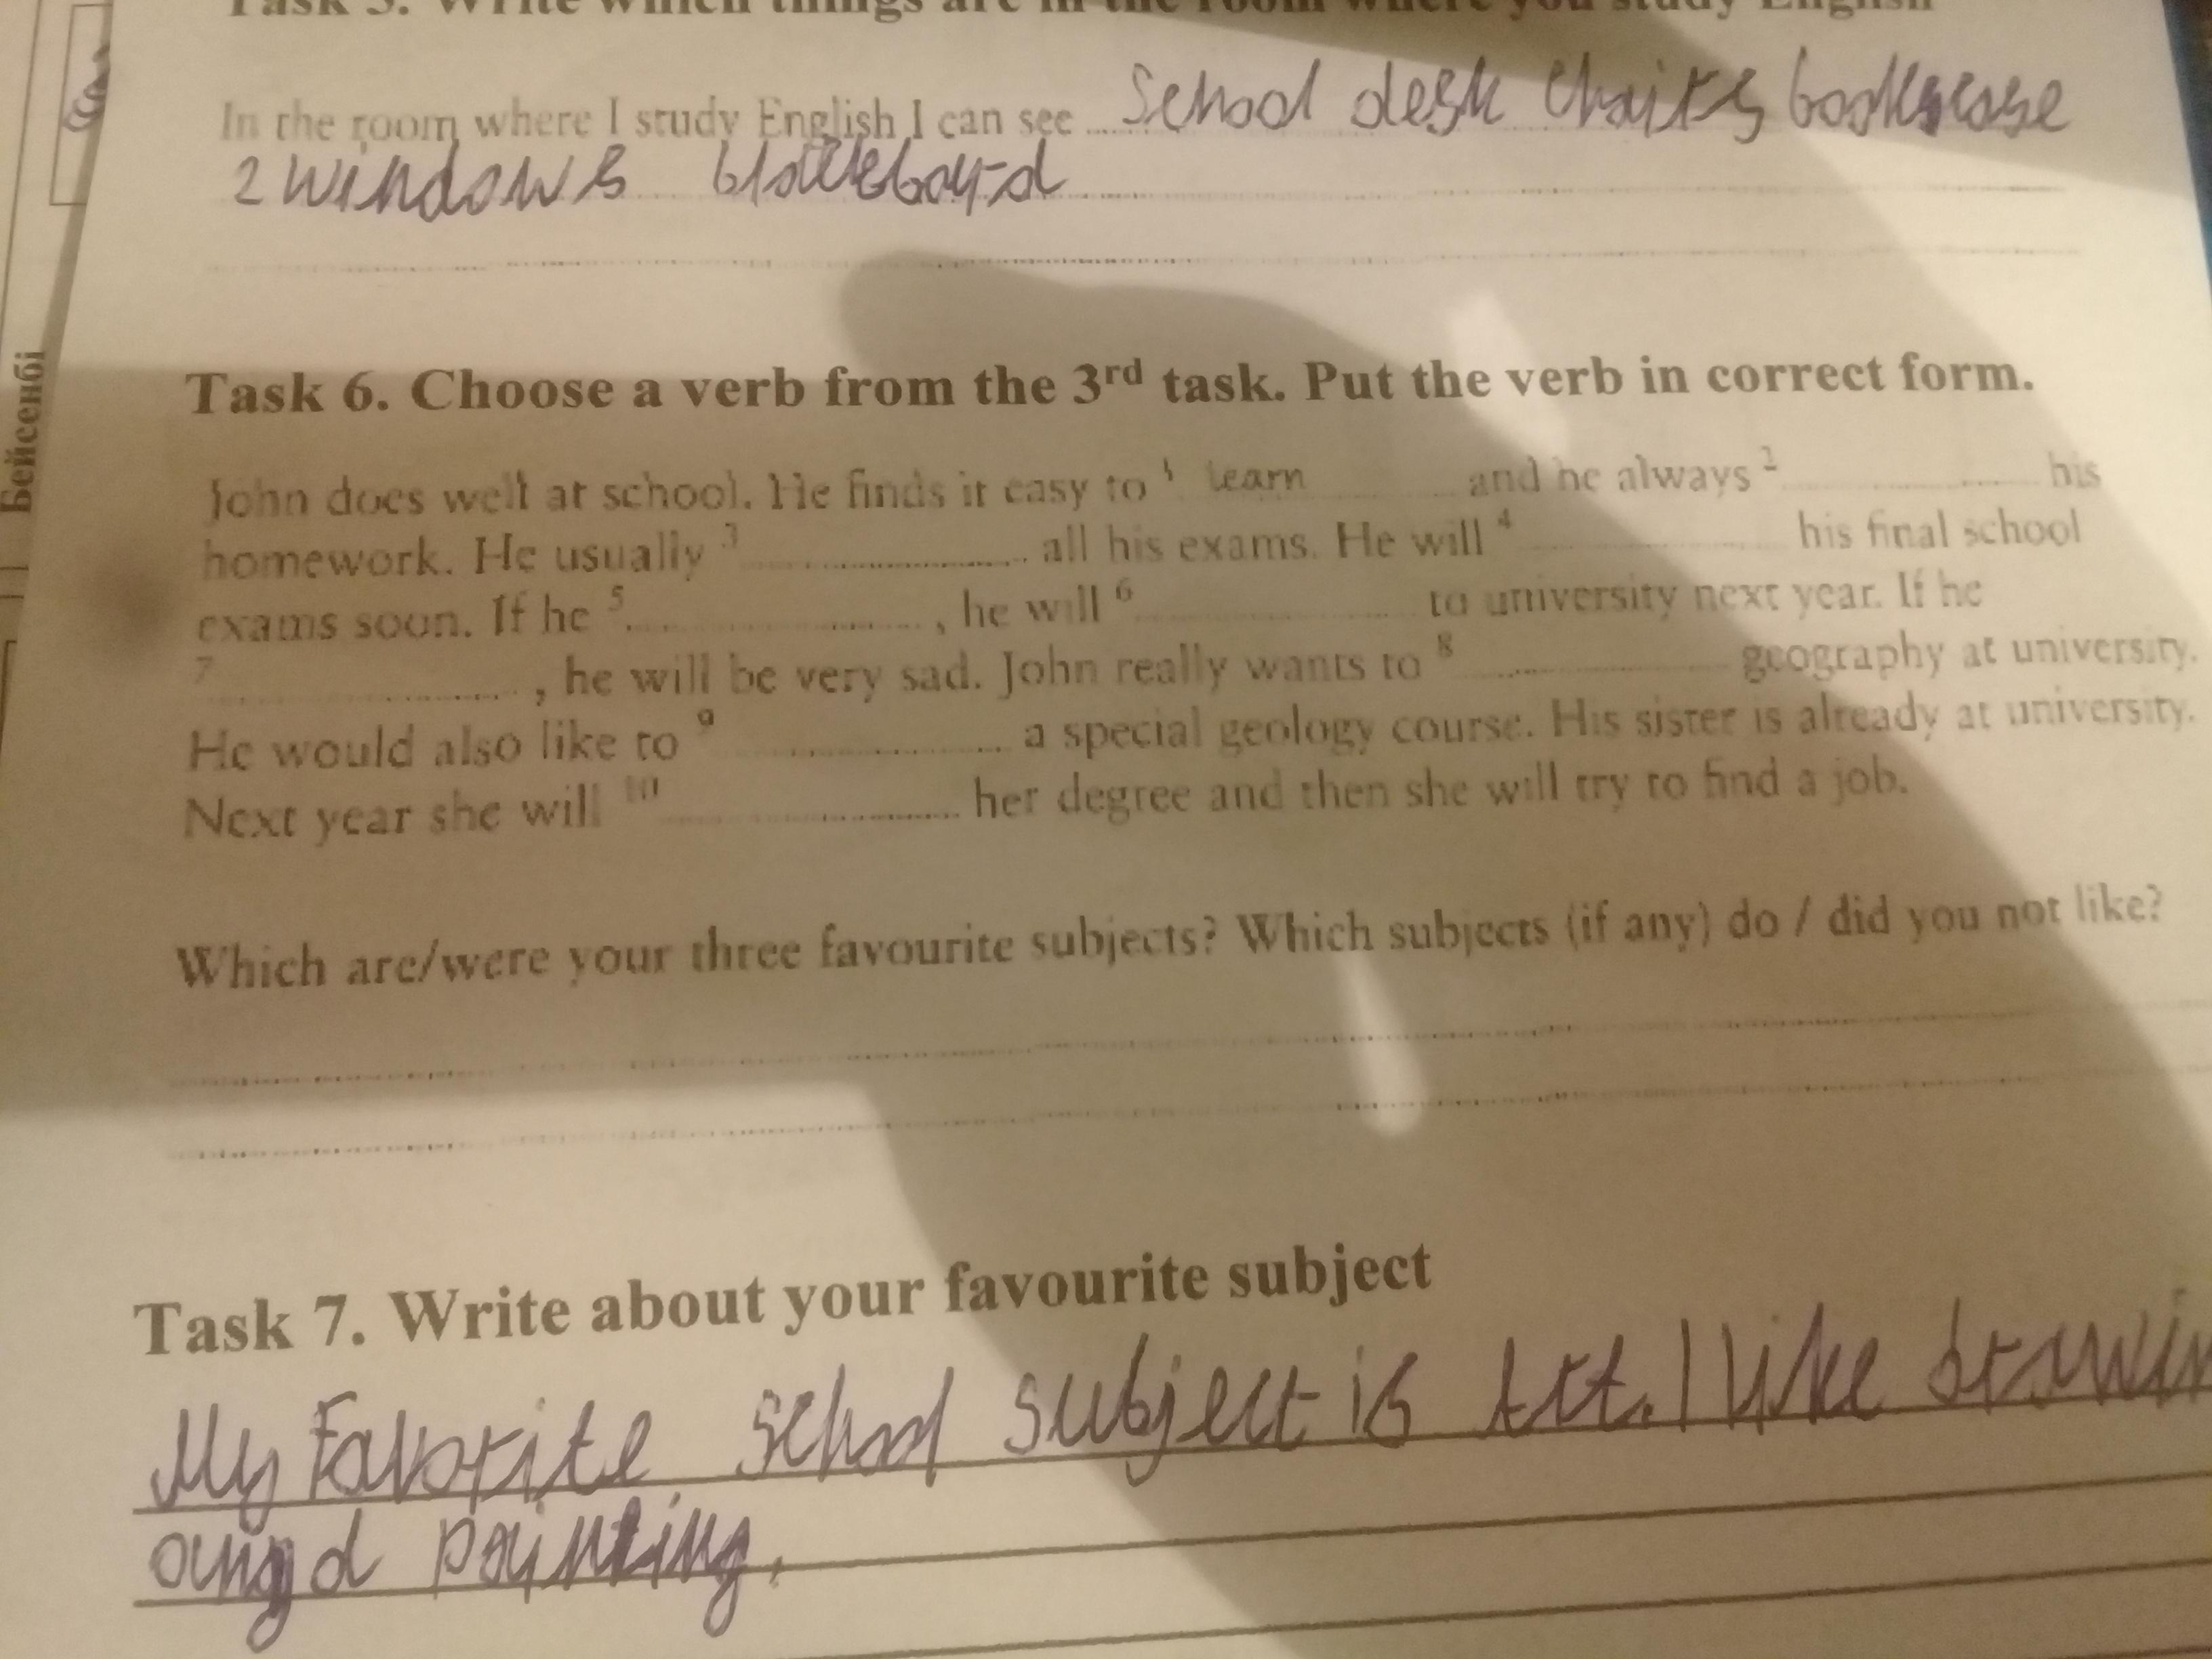 Task 5. Write which things are in the room where you study English
In the room where I study English I can see School desk chairs bookscase
2 windows blackboard
Бейсенбі
Task 6. Choose a verb from the 3rd task. Put the verb in correct form.
John does well at school. He finds it easy to 1 learn ........ and he always 2 ........ his
homework. He usually 3 ........ all his exams. He will 4 ........ his final school
exams soon. If he 5 ........, he will 6 ........ to university next year. If he
7 ........, he will be very sad. John really wants to 8 ........ geography at university.
He would also like to 9 ........ a special geology course. His sister is already at university.
Next year she will 10 ........ her degree and then she will try to find a job.
Which are/were your three favourite subjects? Which subjects (if any) do / did you not like?
Task 7. Write about your favourite subject
My Favorite school subject is Art. I like drawin
painting.